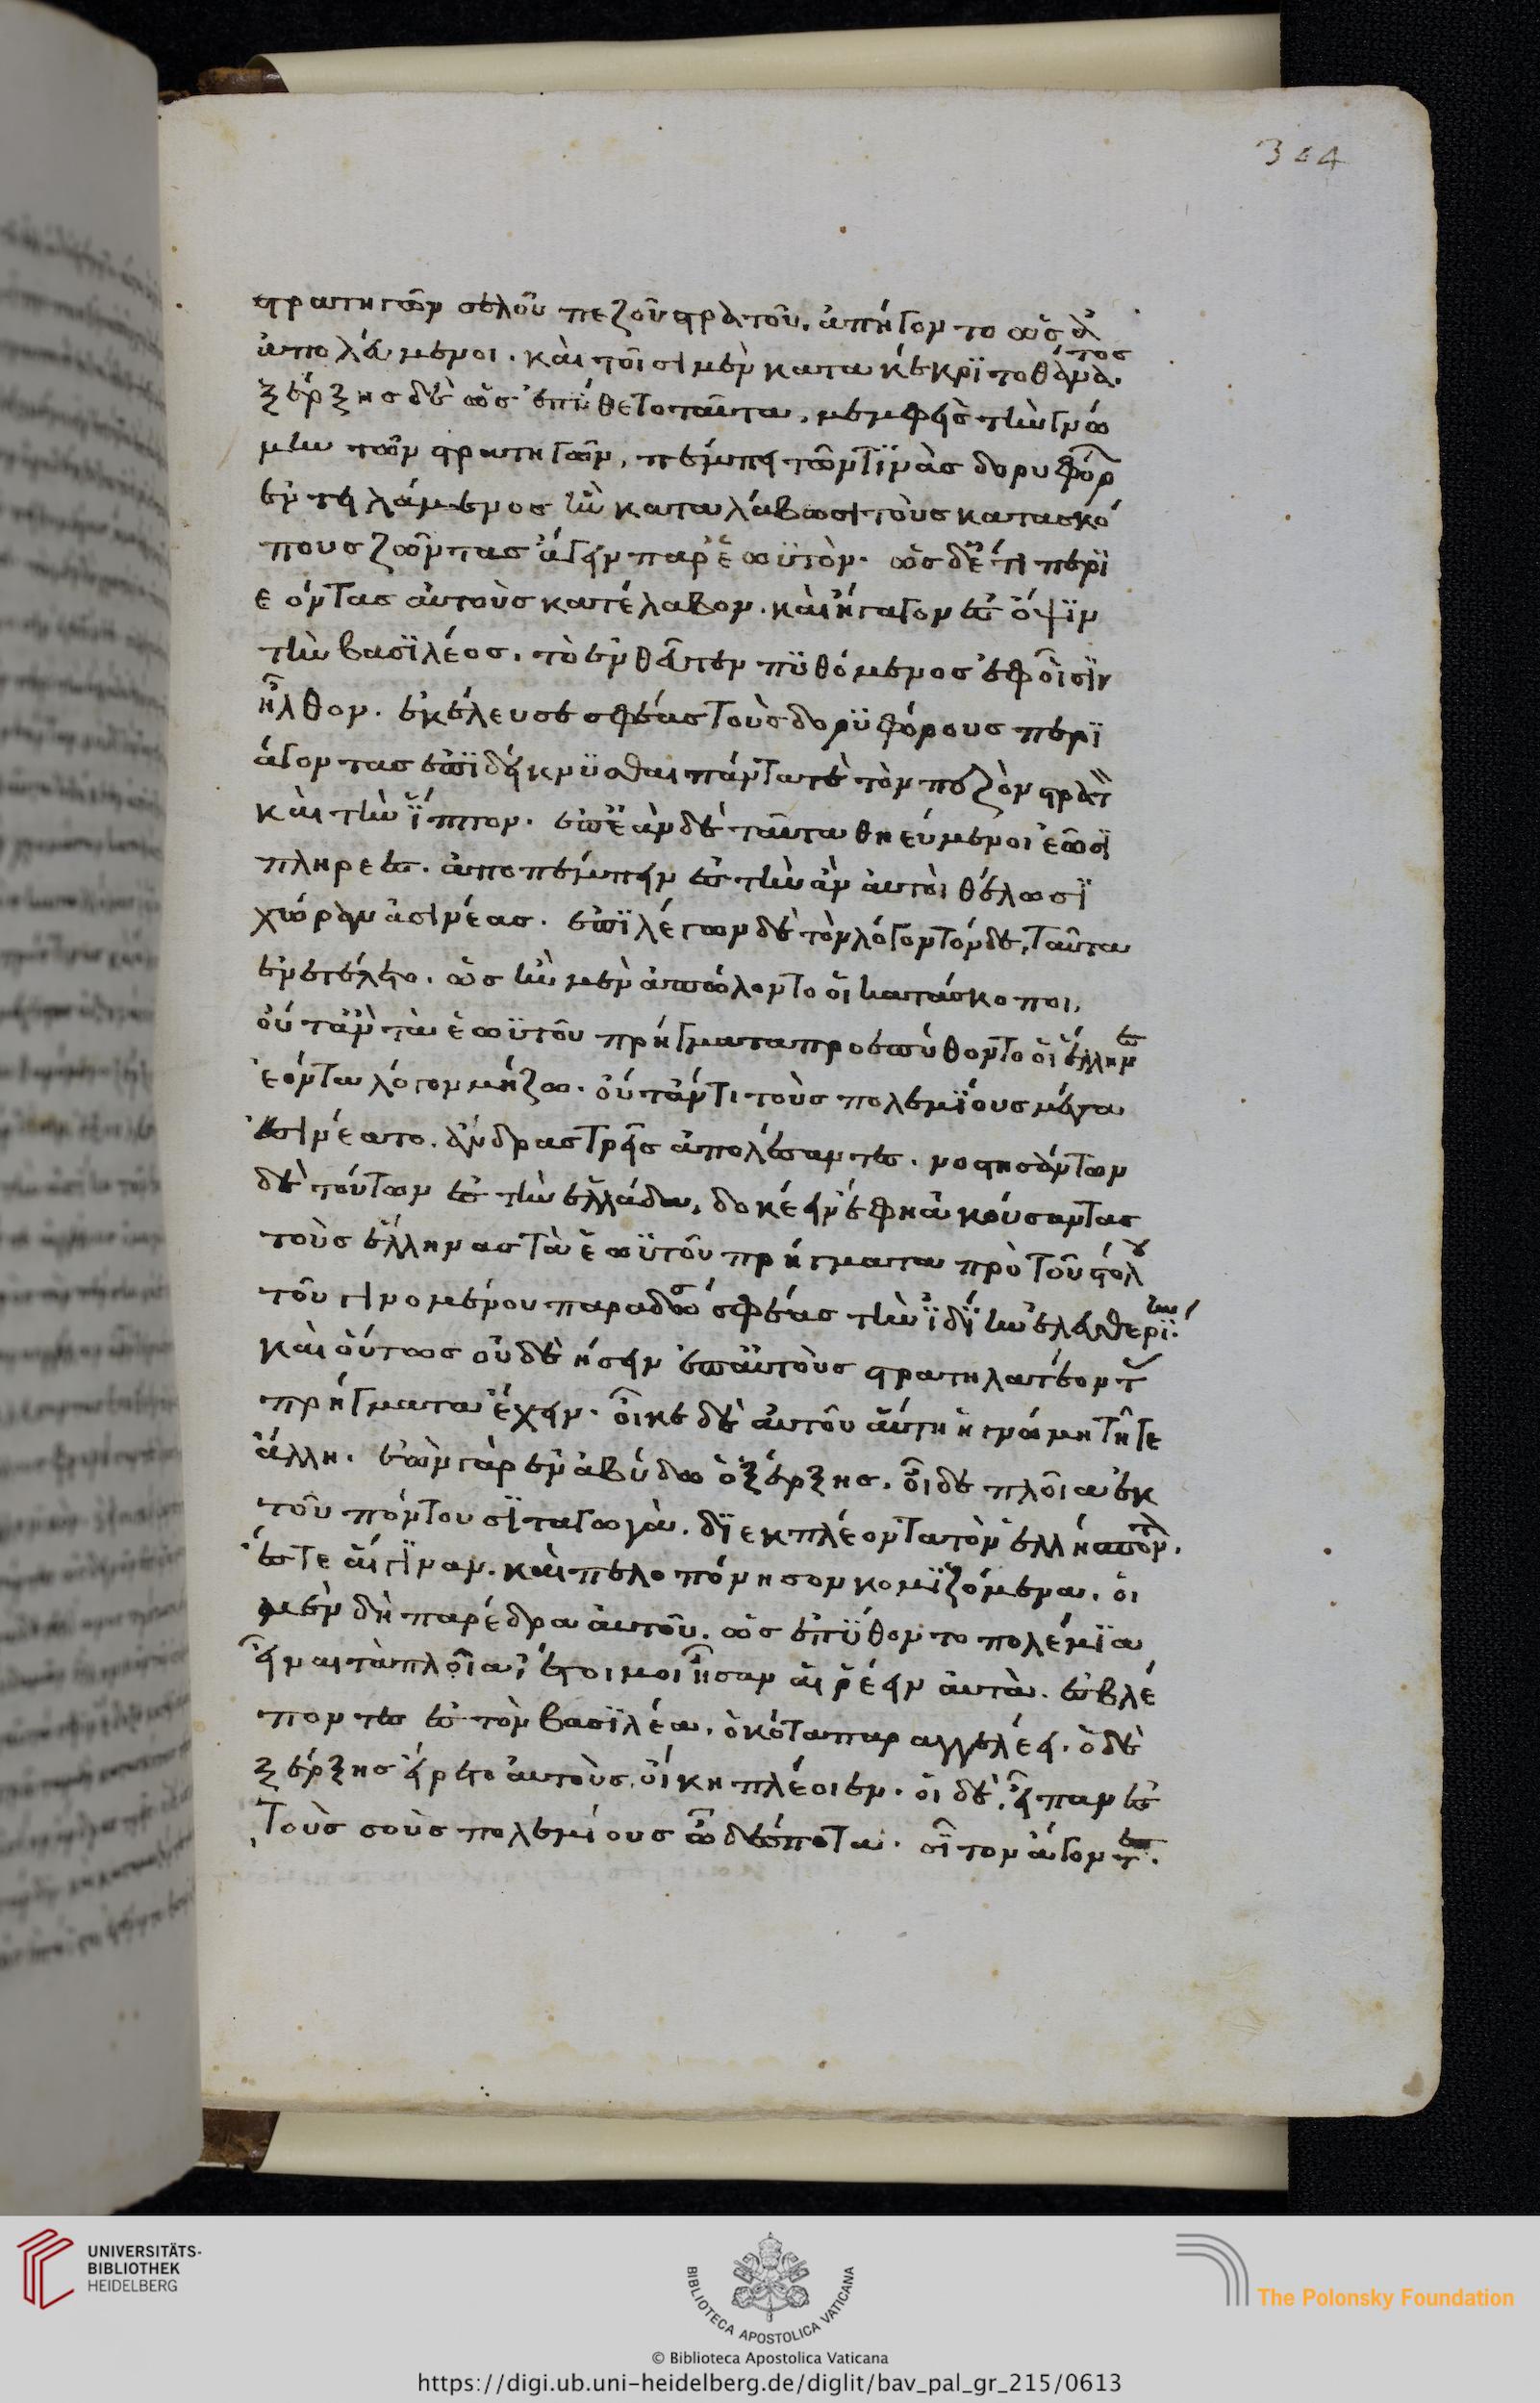 304
στρατηγῶν τοῦ πεζοῦ στρατοῦ. ἀπήγοντο ὡς
ἀπολεύμενοι. καὶ τοῖσι μὲν κατακέκριτο θάνατος.
ξέρξης δὲ ὡς ἐπύθετο ταῦτα, μεμφθεὶς τὴν γνώ
μην τῶν στρατηγῶν, πέμπει τῶν τινὰς δορυφόρ
ἐντειλάμενος ἢν καταλάβωσι τοὺς κατασκό
πους ζῶντας ἄγειν παρ' ἑωϋτόν. ὡς δ' ἔτι περι
εόντας αὐτοὺς κατέλαβον. καὶ ἤγαγον ἐς ὄψιν
τὴν βασιλέος. τὸ ἐνθεῦτεν πυθόμενος ἐφ' οἷσιν
ἦλθον. ἐκέλευσε σφέας τοὺς δορυφόρους περι
άγοντας ἐπιδείκνυσθαι πάντα τε τὸν πεζὸν στρατ
καὶ τὴν ἵππον. ἐπεὰν δὲ ταῦτα θηεύμενοι ἔωσι
πλήρεες. ἀποπέμπειν ἐς τὴν ἂν αὐτοὶ θέλωσι
χώρην ἀσινέας. ἐπιλέγων δὲ τὸν λόγον τόνδε, ταῦτα
ἐνετέλετο. ὡς ἢν μὲν ἀπώλοντο οἱ κατάσκοποι,
οὔτ' ἂν τὰ ἑωϋτοῦ πρήγματα προεπύθοντο οἱ ἕλληνες
ἐόντα λόγου μέζω. οὔτ' ἄν τι τοὺς πολεμίους μέγα
ἐσινέατο. ἄνδρας τρεῖς ἀπολέσαντες. νοστησάντων
δὲ τούτων ἐς τὴν ἑλλάδα, δοκέειν ἔφη ἀκούσαντας
τοὺς ἕλληνας τὰ ἑωϋτοῦ πρήγματα πρὸ τοῦ στόλου
τοῦ γινομένου παραδώσειν σφέας τὴν ἰδίην ἐλευθερίην.
καὶ οὕτως οὐδὲ δήσειν ἐπ' αὐτοὺς στρατηλατέοντ
πρήγματα ἔχειν. οἶκε δὲ αὐτοῦ αὕτη ἡ γνώμη τῇτε
ἄλλῃ. ἐὼν γὰρ ἐν ἀβύδω ὁ ξέρξης. οἶδε πλοῖα ἐκ
τοῦ πόντου σιταγωγὰ. διεκπλέοντα τὸν ἑλλήσποντον.
ἔς τε αἴγιναν. καὶ πελοπόννησον κομιζόμενα. οἱ
μὲν δὴ πάρεδροι αὐτοῦ. ὡς ἐπύθοντο πολέμια
εἶναι τὰ πλοῖα, ἕτοιμοι ἦσαν αἱρέειν αὐτὰ. ἐσβλέ
ποντες ἐς τὸν βασιλέα. ὁκότε παραγγελέει. ὁ δὲ
ξέρξης εἴρετο αὐτοὺς, οἵκη πλέοιεν. οἱ δὲ, εἶπαν ἐς
τοὺς σοὺς πολεμίους ὦ δέσποτα. σῖτον ἄγοντες.
UNIVERSITÄTS-
BIBLIOTHEK
HEIDELBERG
BIBLIOTECA APOSTOLICA VATICANA
The Polonsky Foundation
© Biblioteca Apostolica Vaticana
https://digi.ub.uni-heidelberg.de/diglit/bav_pal_gr_215/0613